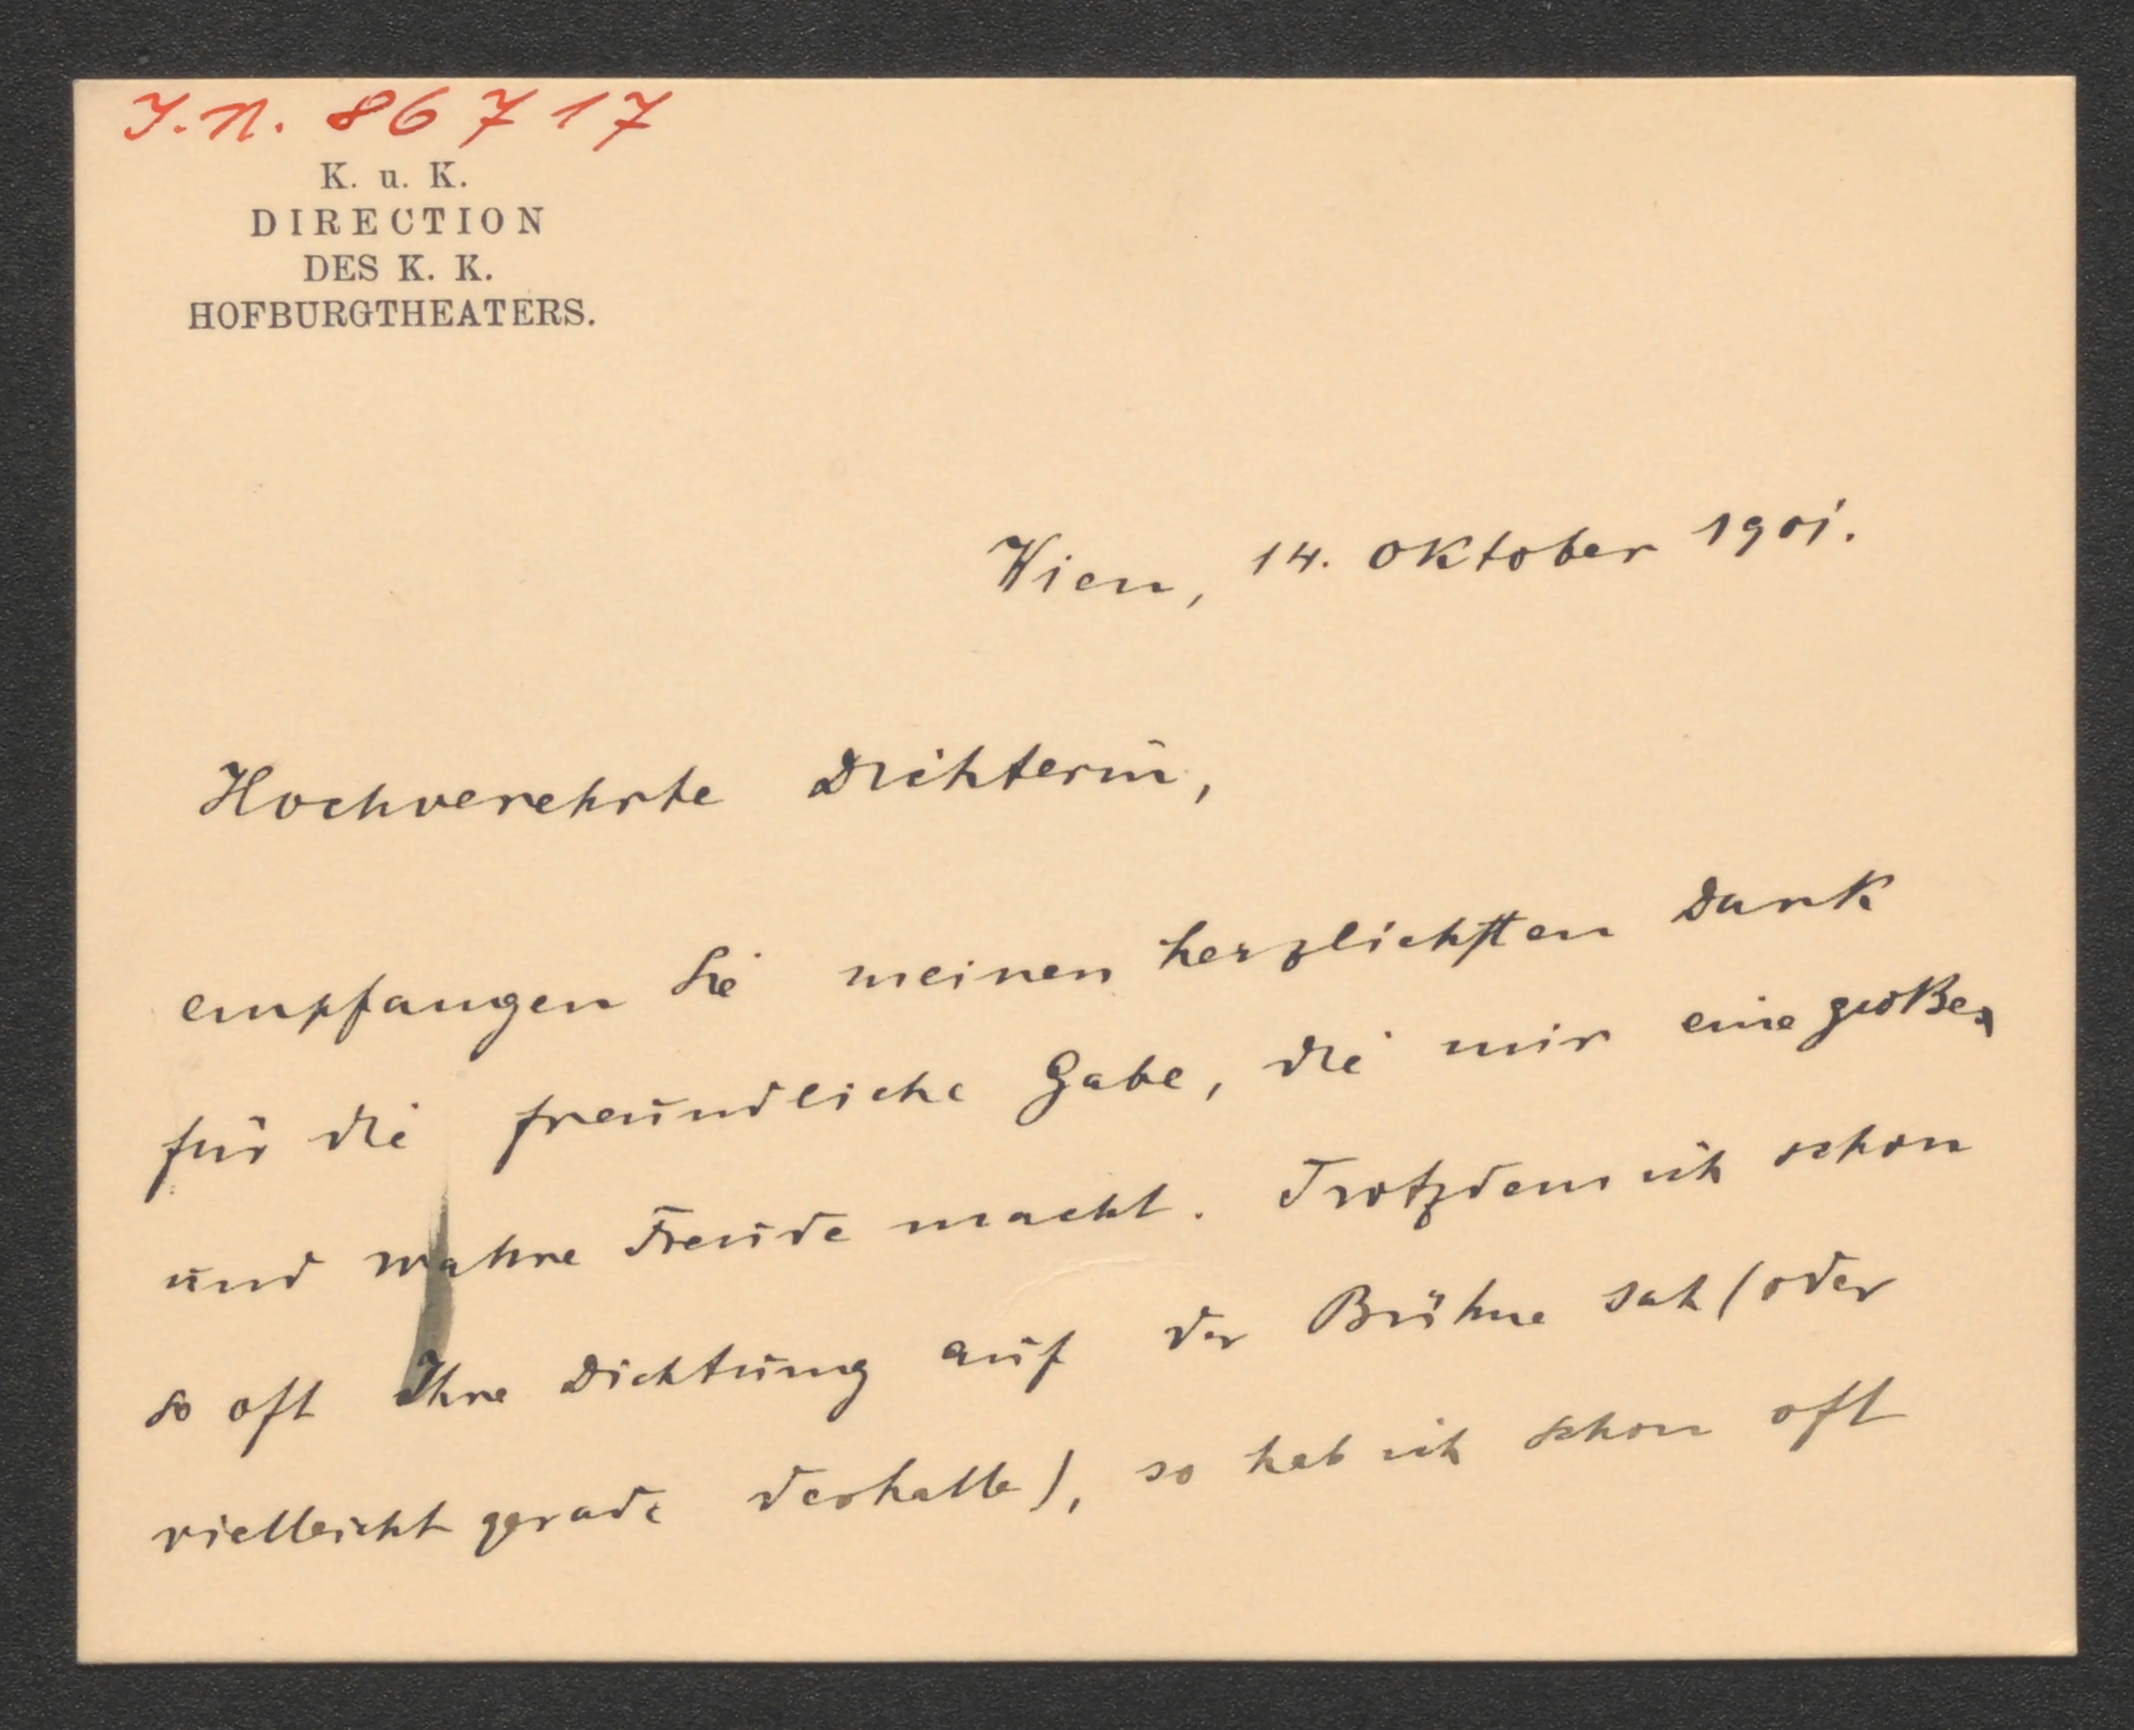 J.N. 86717
K. u. K.
DIRECTION
DES K. K.
HOFBURGTHEATERS.
Wien, 14. Oktober 1901.
Hochverehrte Dichterin,
empfangen Sie meinen herzlichsten Dank
für die freundliche Gabe, die mir eine große
und wahre Freude macht. Trotzdem ich schon
so oft Ihre Dichtung auf der Bühne sah (oder
vielleicht gerade deshalb), so hab ich schon oft